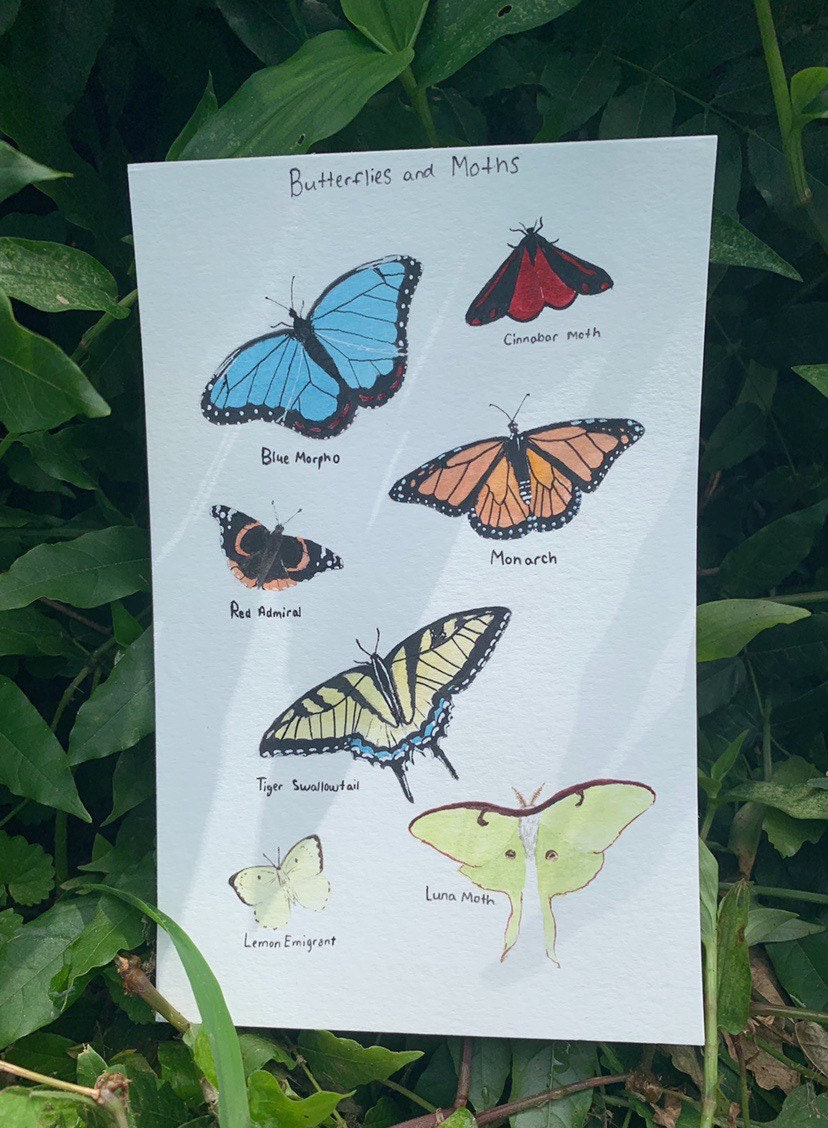 Butterflies and Moths
Cinnabar Moth
Blue Morpho
Monarch
Red Admiral
Tiger Swallowtail
Luna Moth
Lemon Emigrant